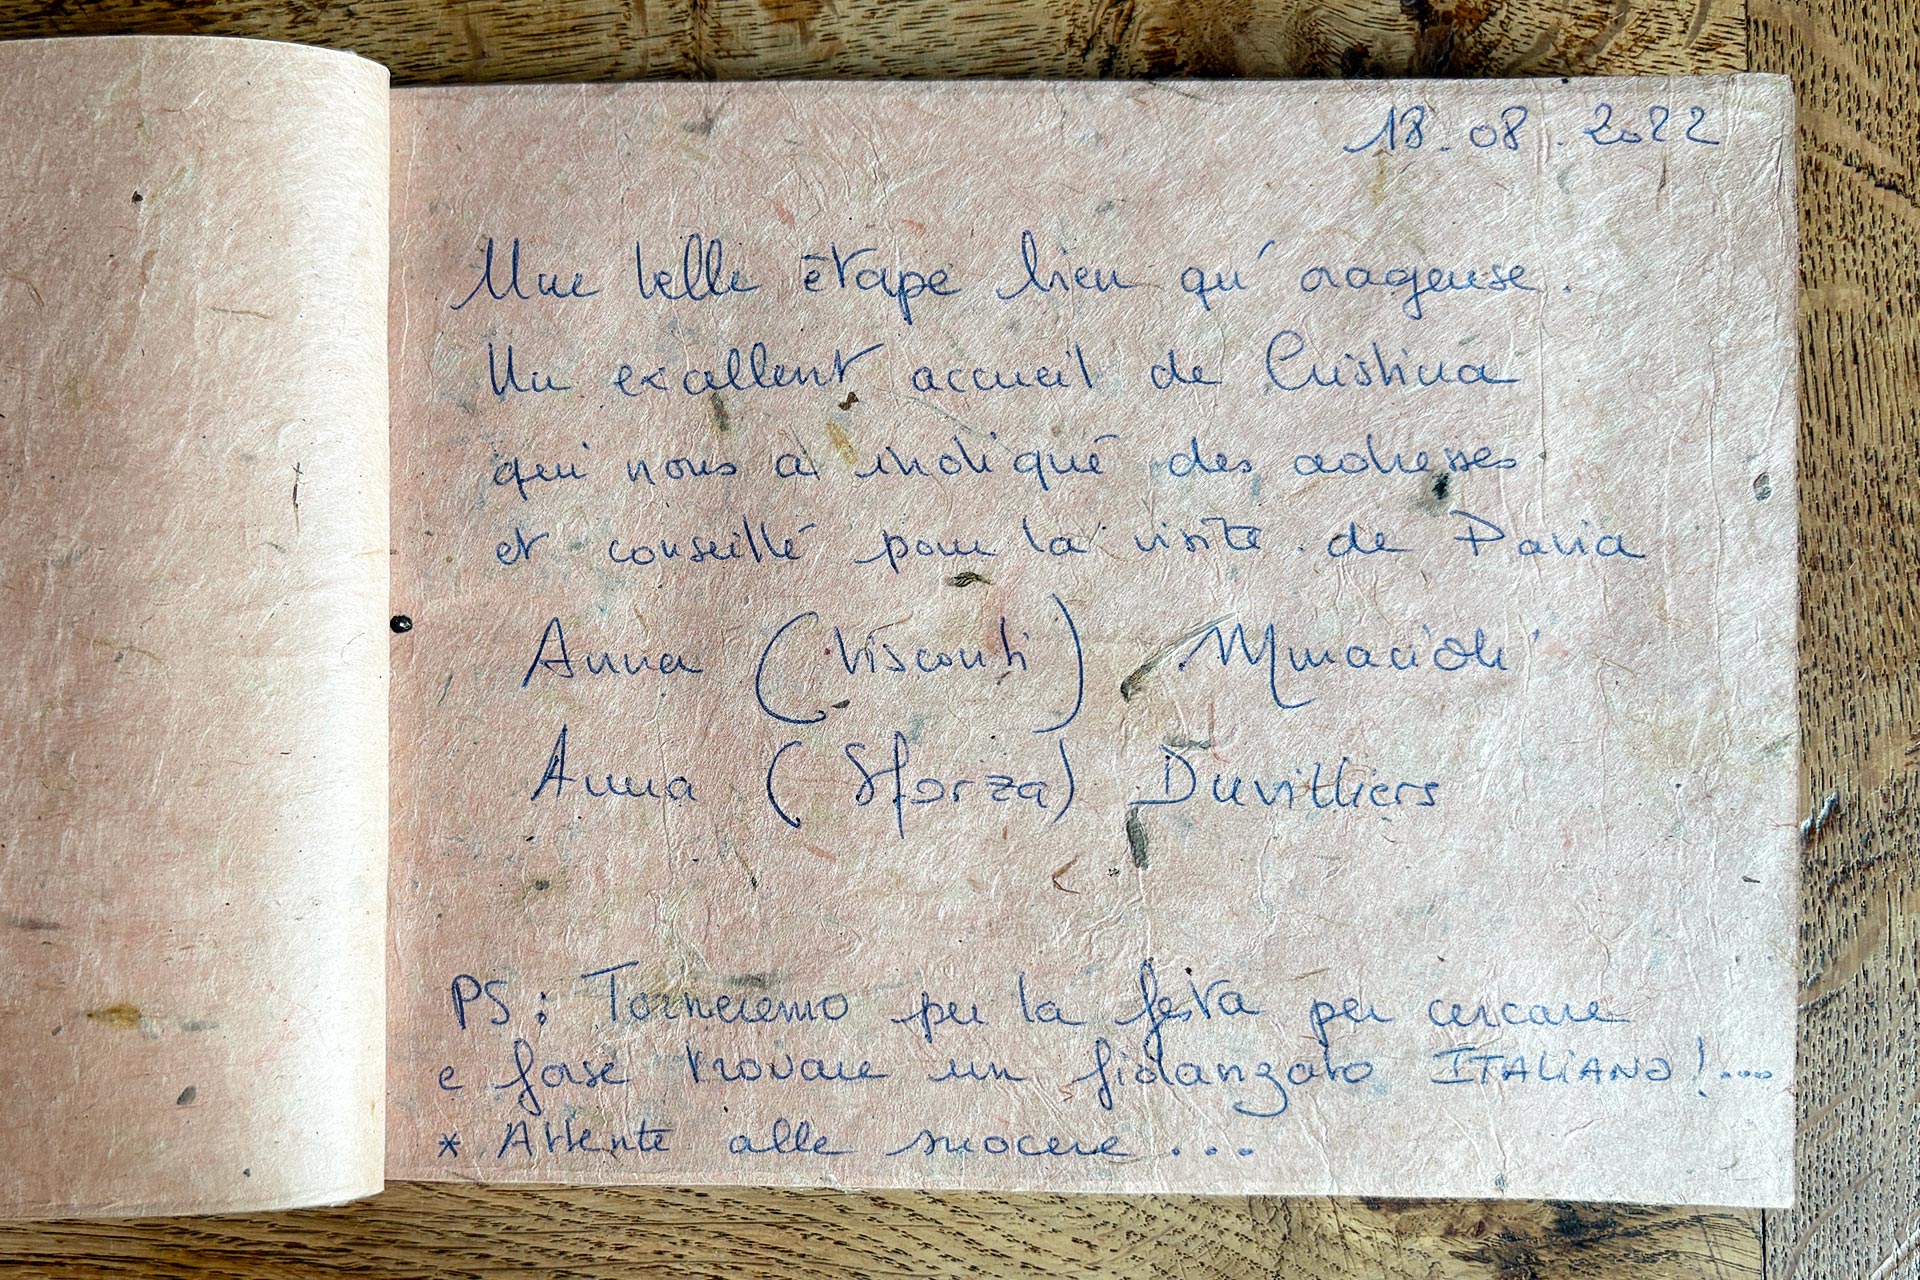 18.08.2022
Une belle étape bien qu'orageuse.
Un excellent accueil de Cristina
qui nous a indiqué des adresses
et conseillé pour la visite de Pavia
Anna (Visconti)
Anna (Sforza) Duvilliers
PS: Torneremo per la festa per cercare
e forse trovare un fidanzato ITALIANO!...
* Attente alle suocere...